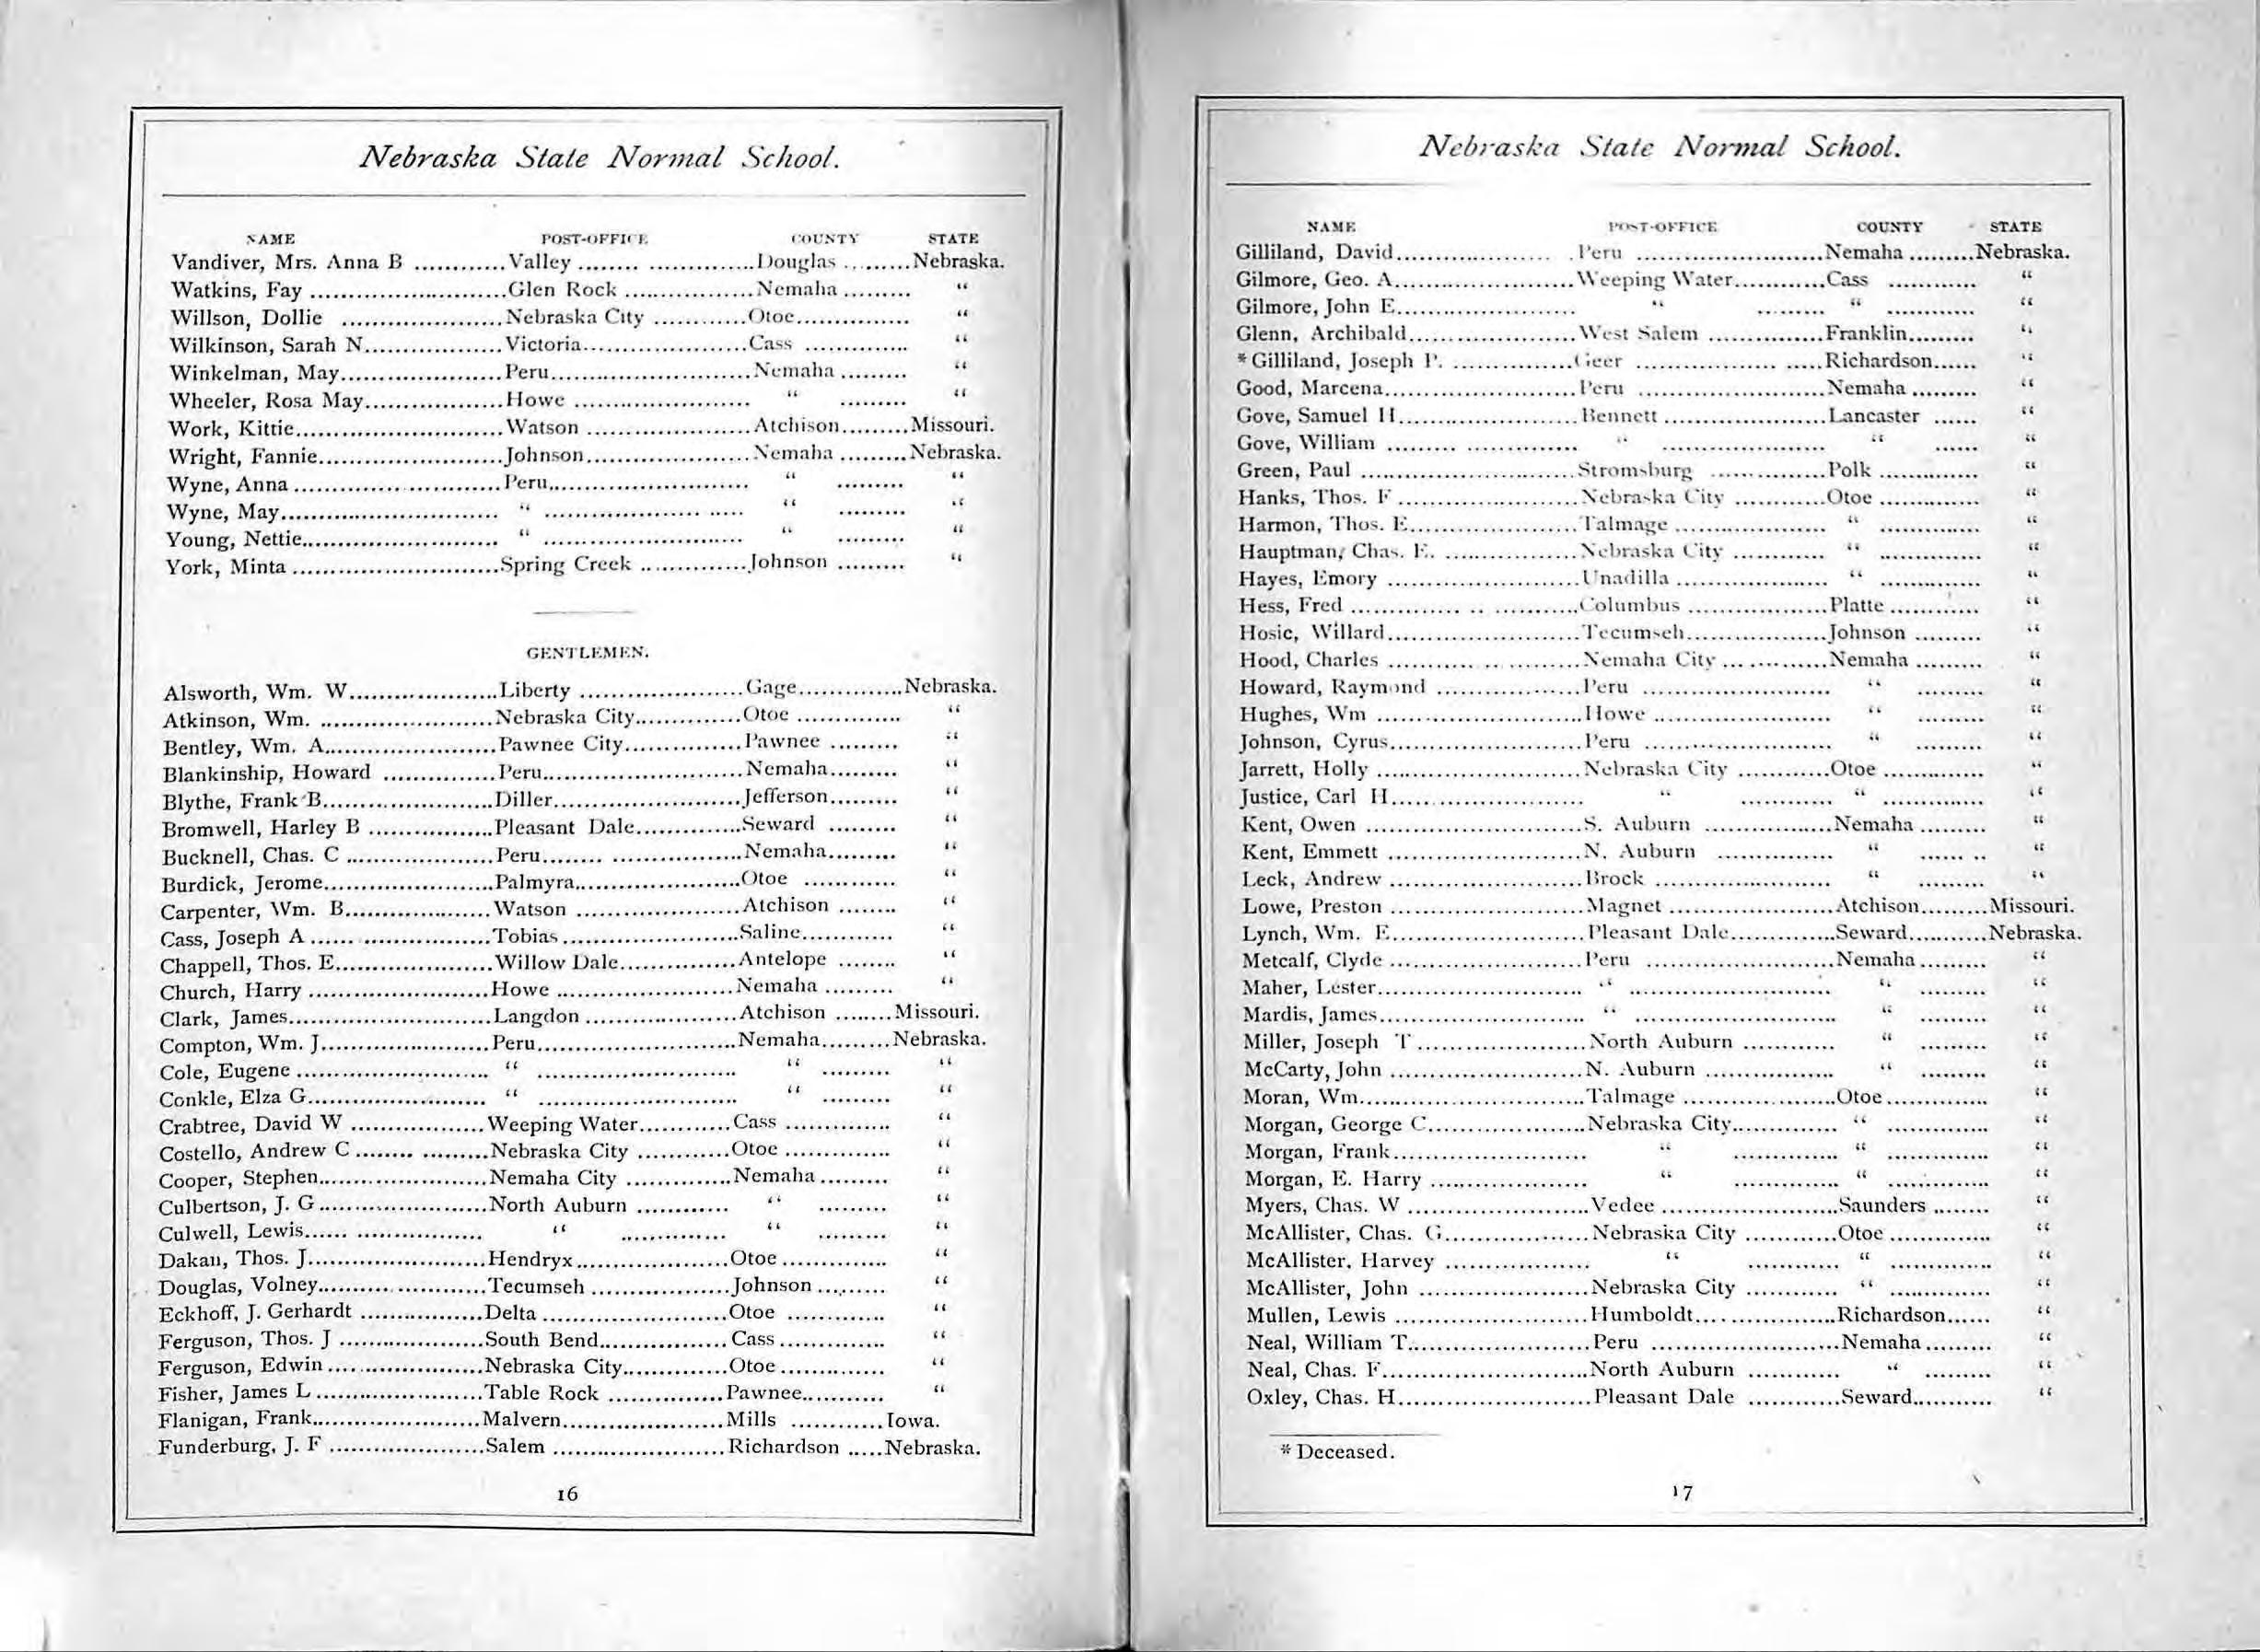 Nebraska State Normal School.
NAME POST-OFFICE COUNTY STATE
Vandiver, Mrs. Anna B ............Valley ........ ..............Douglas .. .......Nebraska.
Watkins, Fay ..........................Glen Rock .................Nemaha ......... “
Willson, Dollie .....................Nebraska City ............Otoe............... “
Wilkinson, Sarah N..................Victoria......................Cass .............. “
Winkelman, May.....................Peru..........................Nemaha ......... “
Wheeler, Rosa May..................Howe ....................... “ ......... “
Work, Kittie...........................Watson .....................Atchison.........Missouri.
Wright, Fannie........................Johnson.....................Nemaha .........Nebraska.
Wyne, Anna ...........................Peru.......................... “ ......... “
Wyne, May............................. “ .......................... “ ......... “
Young, Nettie.......................... “ .......................... “ ......... “
York, Minta ...........................Spring Creek ..............Johnson ......... “
GENTLEMEN.
Alsworth, Wm. W....................Liberty .....................Gage..............Nebraska.
Atkinson, Wm. .......................Nebraska City..............Otoe .............. “
Bentley, Wm. A.......................Pawnee City...............Pawnee ......... “
Blankinship, Howard ...............Peru..........................Nemaha......... “
Blythe, Frank B.......................Diller........................Jefferson......... “
Bromwell, Harley B .................Pleasant Dale..............Seward ......... “
Bucknell, Chas. C ....................Peru........ .................Nemaha......... “
Burdick, Jerome.......................Palmyra.....................Otoe ............ “
Carpenter, Wm. B....................Watson .....................Atchison ........ “
Cass, Joseph A ...... .................Tobias.......................Saline............ “
Chappell, Thos. E.....................Willow Dale...............Antelope ........ “
Church, Harry ........................Howe .......................Nemaha ......... “
Clark, James...........................Langdon ....................Atchison ........Missouri.
Compton, Wm. J.......................Peru..........................Nemaha.........Nebraska.
Cole, Eugene .......................... “ .......................... “ ......... “
Conkle, Elza G........................ “ .......................... “ ......... “
Crabtree, David W ..................Weeping Water............Cass .............. “
Costello, Andrew C ........ .........Nebraska City ............Otoe .............. “
Cooper, Stephen.......................Nemaha City ..............Nemaha ......... “
Culbertson, J. G .......................North Auburn ............ “ ......... “
Culwell, Lewis...... ................. “ .............. “ ......... “
Dakan, Thos. J........................Hendryx....................Otoe .............. “
Douglas, Volney.......................Tecumseh ..................Johnson ......... “
Eckhoff, J. Gerhardt .................Delta ........................Otoe ............. “
Ferguson, Thos. J ....................South Bend.................Cass .............. “
Ferguson, Edwin .....................Nebraska City..............Otoe.............. “
Fisher, James L .......................Table Rock ...............Pawnee........... “
Flanigan, Frank.......................Malvern.....................Mills ............Iowa.
Funderburg, J. F .....................Salem .......................Richardson .....Nebraska.
16
Nebraska State Normal School.
NAME POST-OFFICE COUNTY STATE
Gilliland, David.................... .Peru ........................Nemaha .........Nebraska.
Gilmore, Geo. A........................Weeping Water............Cass ............ “
Gilmore, John E........................ “ ......... “ ............ “
Glenn, Archibald......................West Salem ...............Franklin......... “
*Gilliland, Joseph P. ................Geer .................. .....Richardson...... “
Good, Marcena.........................Peru ........................Nemaha ......... “
Gove, Samuel H........................Bennett .....................Lancaster ...... “
Gove, William ......... .............. “ ..................... “ ...... “
Green, Paul ............................Stromsburg ...............Polk ............. “
Hanks, Thos. F .......................Nebraska City ............Otoe ............. “
Harmon, Thos. E......................Talmage .................... “ ............. “
Hauptman, Chas. E. .................Nebraska City ............ “ ............. “
Hayes, Emory .........................Unadilla .................... “ ............. “
Hess, Fred .............. .. ...........Columbus ..................Platte ............ “
Hosic, Willard.........................Tecumseh..................Johnson ......... “
Hood, Charles ........... .. .........Nemaha City ..............Nemaha ......... “
Howard, Raymond ...................Peru ........................ “ ......... “
Hughes, Wm ...........................Howe ....................... “ ......... “
Johnson, Cyrus.........................Peru ........................ “ ......... “
Jarrett, Holly ..........................Nebraska City ............Otoe ............. “
Justice, Carl H......................... “ ............ “ ............. “
Kent, Owen ............................S. Auburn .................Nemaha ......... “
Kent, Emmett .........................N. Auburn ............... “ ...... .. “
Leck, Andrew .........................Brock ....................... “ ......... “
Lowe, Preston .........................Magnet .....................Atchison.........Missouri.
Lynch, Wm. E.........................Pleasant Dale..............Seward...........Nebraska.
Metcalf, Clyde .........................Peru ........................Nemaha ......... “
Maher, Lester........................... “ .......................... “ ......... “
Mardis, James........................... “ .......................... “ ......... “
Miller, Joseph T ......................North Auburn ............ “ ......... “
McCarty, John .........................N. Auburn ................. “ ......... “
Moran, Wm.............................Talmage ....................Otoe.............. “
Morgan, George C.....................Nebraska City.............. “ ............. “
Morgan, Frank......................... “ .............. “ ............. “
Morgan, E. Harry .................... “ .............. “ ............. “
Myers, Chas. W .......................Vedee .......................Saunders ........ “
McAllister, Chas. G...................Nebraska City ............Otoe ............. “
McAllister, Harvey ................... “ ............ “ ............. “
McAllister, John ......................Nebraska City ............ “ ............. “
Mullen, Lewis .........................Humboldt..................Richardson...... “
Neal, William T........................Peru ........................Nemaha ......... “
Neal, Chas. F...........................North Auburn ............ “ ......... “
Oxley, Chas. H.........................Pleasant Dale ............Seward........... “
* Deceased.
17